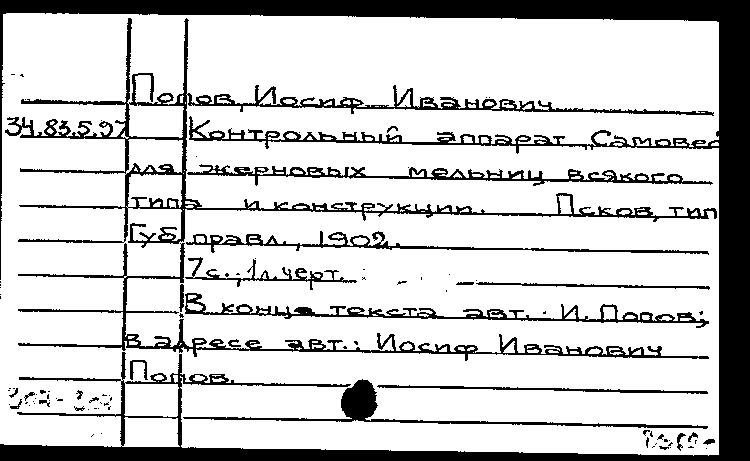 Попов, Иосиф Иванович
34.83.5.97 Контрольный аппарат „Самовес
для жерновых мельниц всякого
типа и конструкции. Псков, тип
Губ. правл., 1902.
7 с.; 1 л. черт.
В конце текста авт.: И. Попов;
в адресе авт.: Иосиф Иванович
Попов.